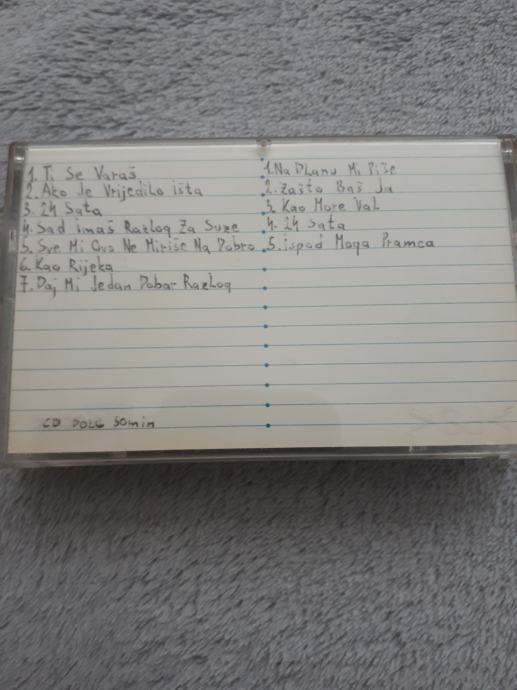 1. Ti Se Varaš
2. Ako Je Vrijedilo išta
3. 24 Sata
4. Sad imaš Razlog Za Suze
5. Sve Mi Ovo Ne Miriše Na Dobro
6. Kao Rijeka
7. Daj Mi Jedan Dobar Razlog
1. Na DLanu Mi Piše
2. Zašto Baš Ja
3. Kao More VaL
4. 24 Sata
5. ispod Moga Pramca
CD DOLG 50min